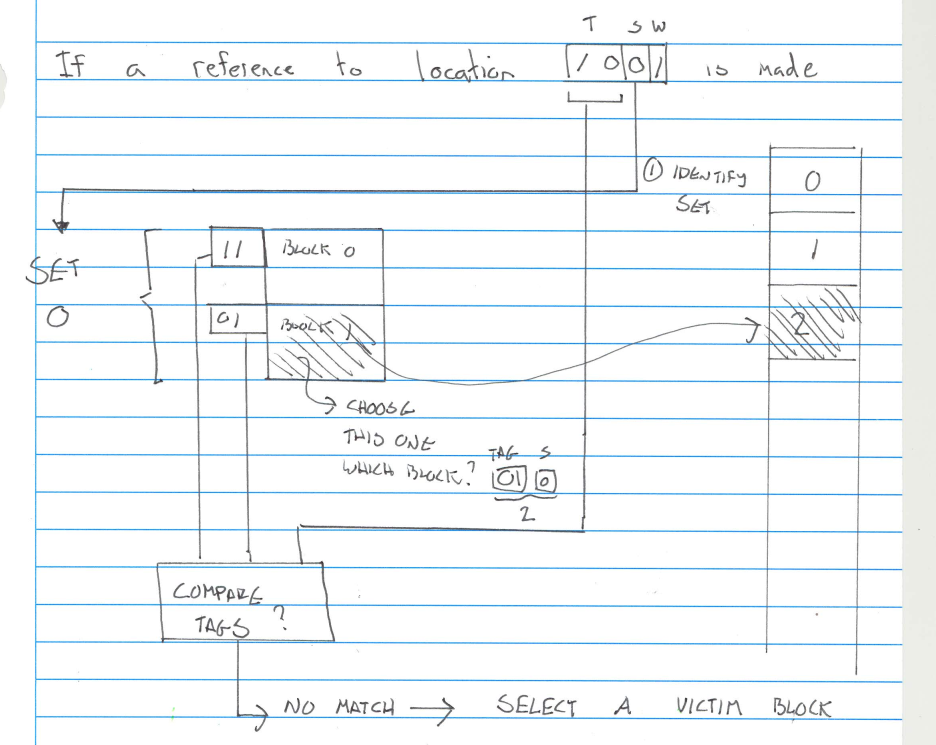 T S W
If a reference to location 1 0 0 1 is made
① IDENTIFY
SET
0
1
2
SET
0
11 BLOCK 0
01 BLOCK 1
CHOOSE
THIS ONE
WHICH BLOCK?
TAG S
01 0
2
COMPARE
TAGS ?
NO MATCH → SELECT A VICTIM BLOCK